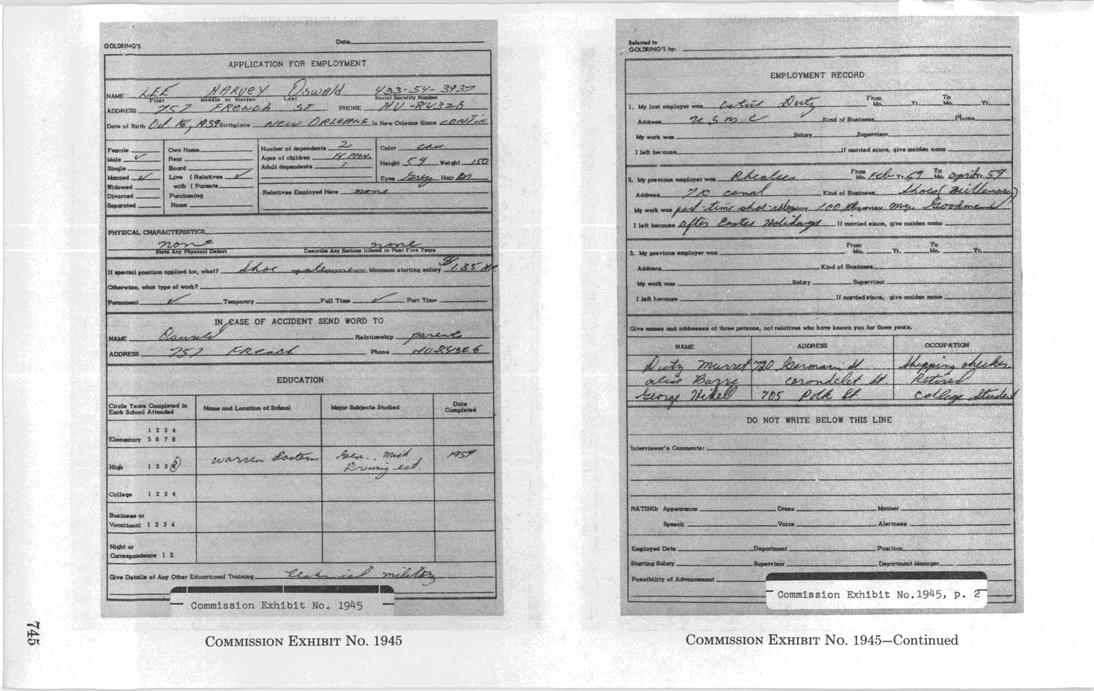 GOLDRING'S Date
APPLICATION FOR EMPLOYMENT
NAME LEE HARVEY Oswald 433-54-3937
First Middle or Maiden Last Social Security Number
ADDRESS 757 FRENCH ST PHONE HU-84326
Date of Birth Oct. 18, 1939 Birthplace NEW ORLEANS In New Orleans Since
Female Own Home Number of dependents 2 Color cau
Male ✓ Rent Ages of children 14 mon. Height 5 9 Weight 150
Single Board Adult dependents 1
Married ✓ Live { Relatives ✓ Eyes Hair
Widowed with { Parents
Divorced Purchasing Relatives Employed Here none
Separated Home
PHYSICAL CHARACTERISTICS
none none
State Any Physical Defect Describe Any Serious Illness in Past Five Years
If special position applied for, what? Shoe salesman Minimum starting salary 1.35
Otherwise, what type of work?
Permanent ✓ Temporary Full Time ✓ Part Time
IN CASE OF ACCIDENT SEND WORD TO
NAME Relationship parents
ADDRESS 757 French Phone
EDUCATION
Circle Years Completed in Each School Attended Name and Location of School Major Subjects Studied Date Completed
1 2 3 4
Elementary 5 6 7 8
High 1 2 3 4 Warren Eastern 1959
College 1 2 3 4
Business or
Vocational 1 2 3 4
Night or
Correspondence 1 2
Give Details of Any Other Educational Training technical military
Commission Exhibit No. 1945
COMMISSION EXHIBIT No. 1945
745
Referred to
GOLDRING'S by:
EMPLOYMENT RECORD
1. My last employer was From Mo. Yr. To Mo. Yr.
Address U S M C Kind of Business Phone
My work was Salary Supervisor
I left because If married since, give maiden name
2. My previous employer was From Mo. Feb Yr. 59 To Mo. april Yr. 59
Address canal Kind of Business Shoes (Millenary)
My work was part-time shoe Salary 1.00 Supervisor Goodman
I left because after Easter Holidays If married since, give maiden name
3. My previous employer was From Mo. Yr. To Mo. Yr.
Address Kind of Business
My work was Salary Supervisor
I left because If married since, give maiden name
Give names and addresses of three persons, not relatives who have known you for three years.
NAME ADDRESS OCCUPATION
Murret 720 Germain st Shipping checker
Carondelet st. Retired
George 705 Polk st College Student
DO NOT WRITE BELOW THIS LINE
Interviewer's Comments:
RATING: Appearance Dress Manner
Speech Voice Alertness
Employed Date Department Position
Starting Salary Supervisor Department Manager
Possibility of Advancement
Commission Exhibit No. 1945, p. 2
COMMISSION EXHIBIT No. 1945—Continued